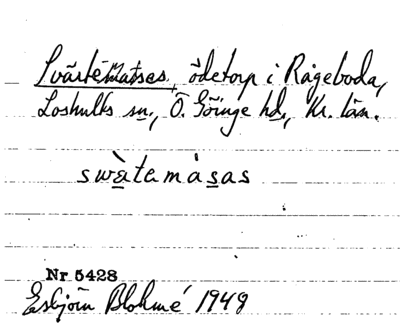 Svärte Matses, ödetorp i Rågeboda,
Loshults sn., Ö. Göinge hd., Kr. län.
swàtamàsas
Nr 5428
Esbjörn Blohmé 1948